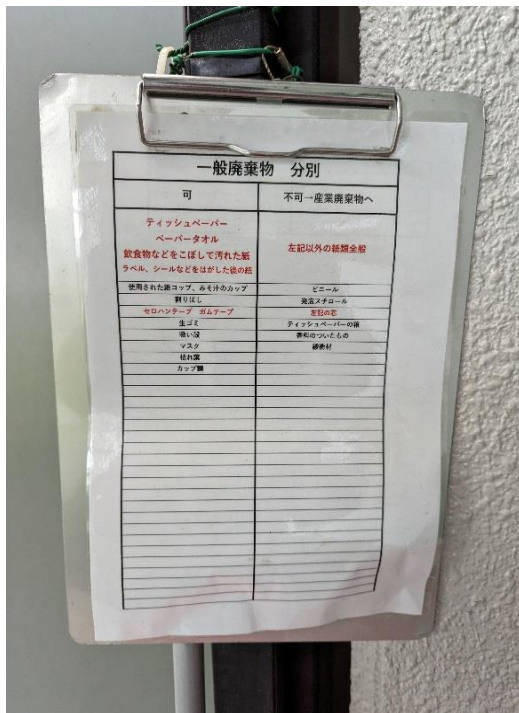 一般廃棄物 分別
可
不可→産業廃棄物へ
ティッシュペーパー
ペーパータオル
飲食物などをこぼして汚れた紙
ラベル、シールなどをはがした後の紙
左記以外の紙類全般
使用された紙コップ、みそ汁のカップ
ビニール
割りばし
発泡スチロール
セロハンテープ ガムテープ
左記の芯
生ゴミ
ティッシュペーパーの箱
吸い殻
のついたもの
マスク
緩衝材
枯れ葉
カップ麺